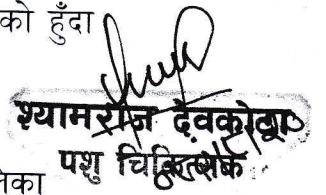 को हुँदा
श्यामराज देवकोटा
पशु चिकित्सक
का